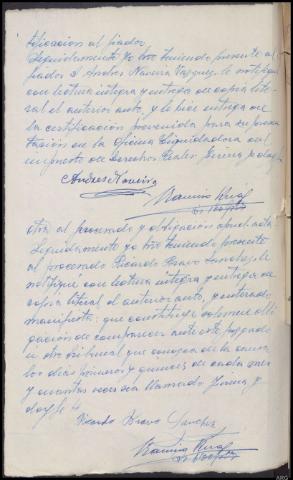 tificacion al fiador
Seguidamente yo teniendo presente al
fiador D. Andres Naveira Vazquez, le notifiqué
con lectura integra y entrega de copia lite-
ral el anterior auto, y le hice entrega de
la certificación prevenida para su presen-
tación en la Oficina Liquidadora del
impuesto de Derechos Reales firma y doy fe
Andres Naveira
Otra al procesado y obligación apud acta
Seguidamente yo teniendo presente
al procesado Ricardo Bravo Sanchez, le
notifiqué con lectura integra y entrega de
copia literal el anterior auto, y enterado
manifiesta: que constituye solemne obli-
gación de comparecer ante este Juzgado
u otro tribunal que conozca de la causa
los dias primeros y quince de cada mes
y cuantas veces sea llamado firma y
doy fe
Ricardo Bravo Sanchez